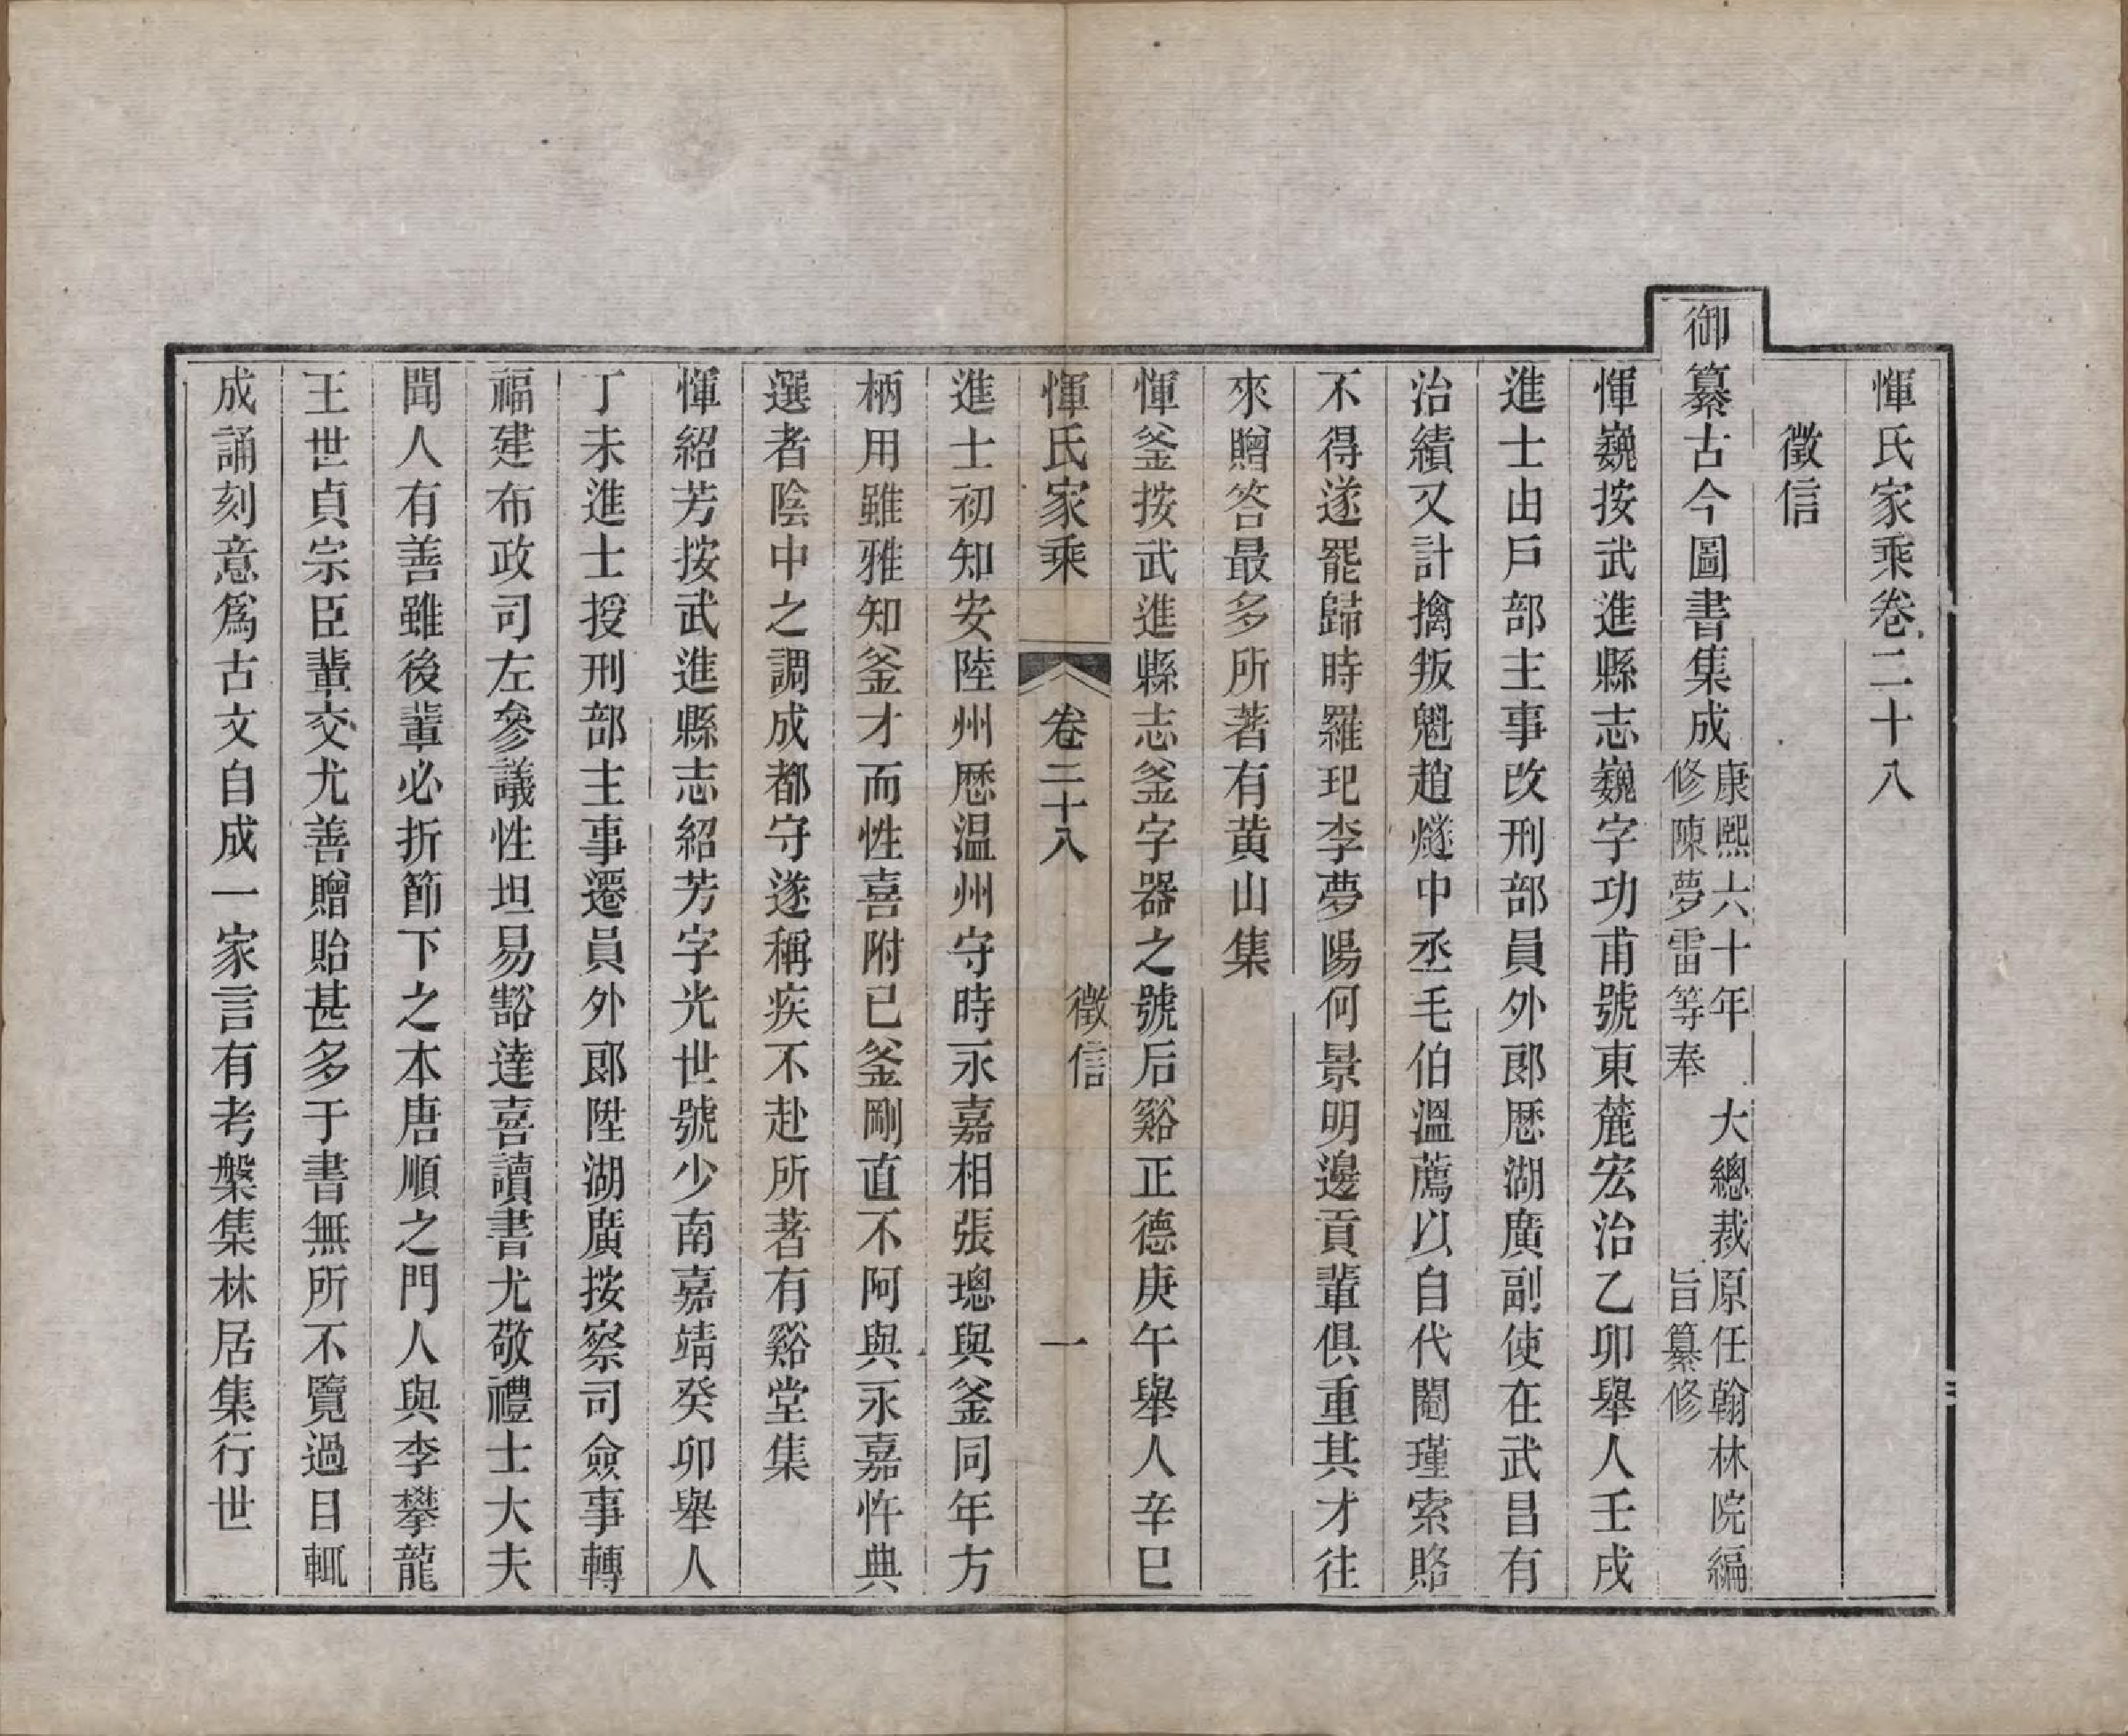 惲氏家乘卷二十八
徵信
御纂古今圖書集成康熙六十年 大總裁原任翰林院編
修陳夢雷等奉 旨纂修
惲巍按武進縣志巍字功甫號東麓宏治乙卯舉人壬戌
進士由戶部主事改刑部員外郎歷湖廣副使在武昌有
治績又計擒叛魁趙燧中丞毛伯溫薦以自代閹瑾索賂
不得遂罷歸時羅玘李夢陽何景明邊貢輩俱重其才往
來贈答最多所著有黃山集
惲釜按武進縣志釜字器之號后谿正德庚午舉人辛巳
惲氏家乘 卷二十八 徵信 一
進士初知安陸州歷温州守時永嘉相張璁與釜同年方
柄用雖雅知釜才而性喜附已釜剛直不阿與永嘉忤典
選者陰中之調成都守遂稱疾不赴所著有谿堂集
惲紹芳按武進縣志紹芳字光世號少南嘉靖癸卯舉人
丁未進士授刑部主事遷員外郎陞湖廣按察司僉事轉
福建布政司左參議性坦易豁達喜讀書尤敬禮士大夫
聞人有善雖後輩必折節下之本唐順之門人與李攀龍
王世貞宗臣輩交尤善贈貽甚多于書無所不覽過目輒
成誦刻意爲古文自成一家言有考槃集林居集行世